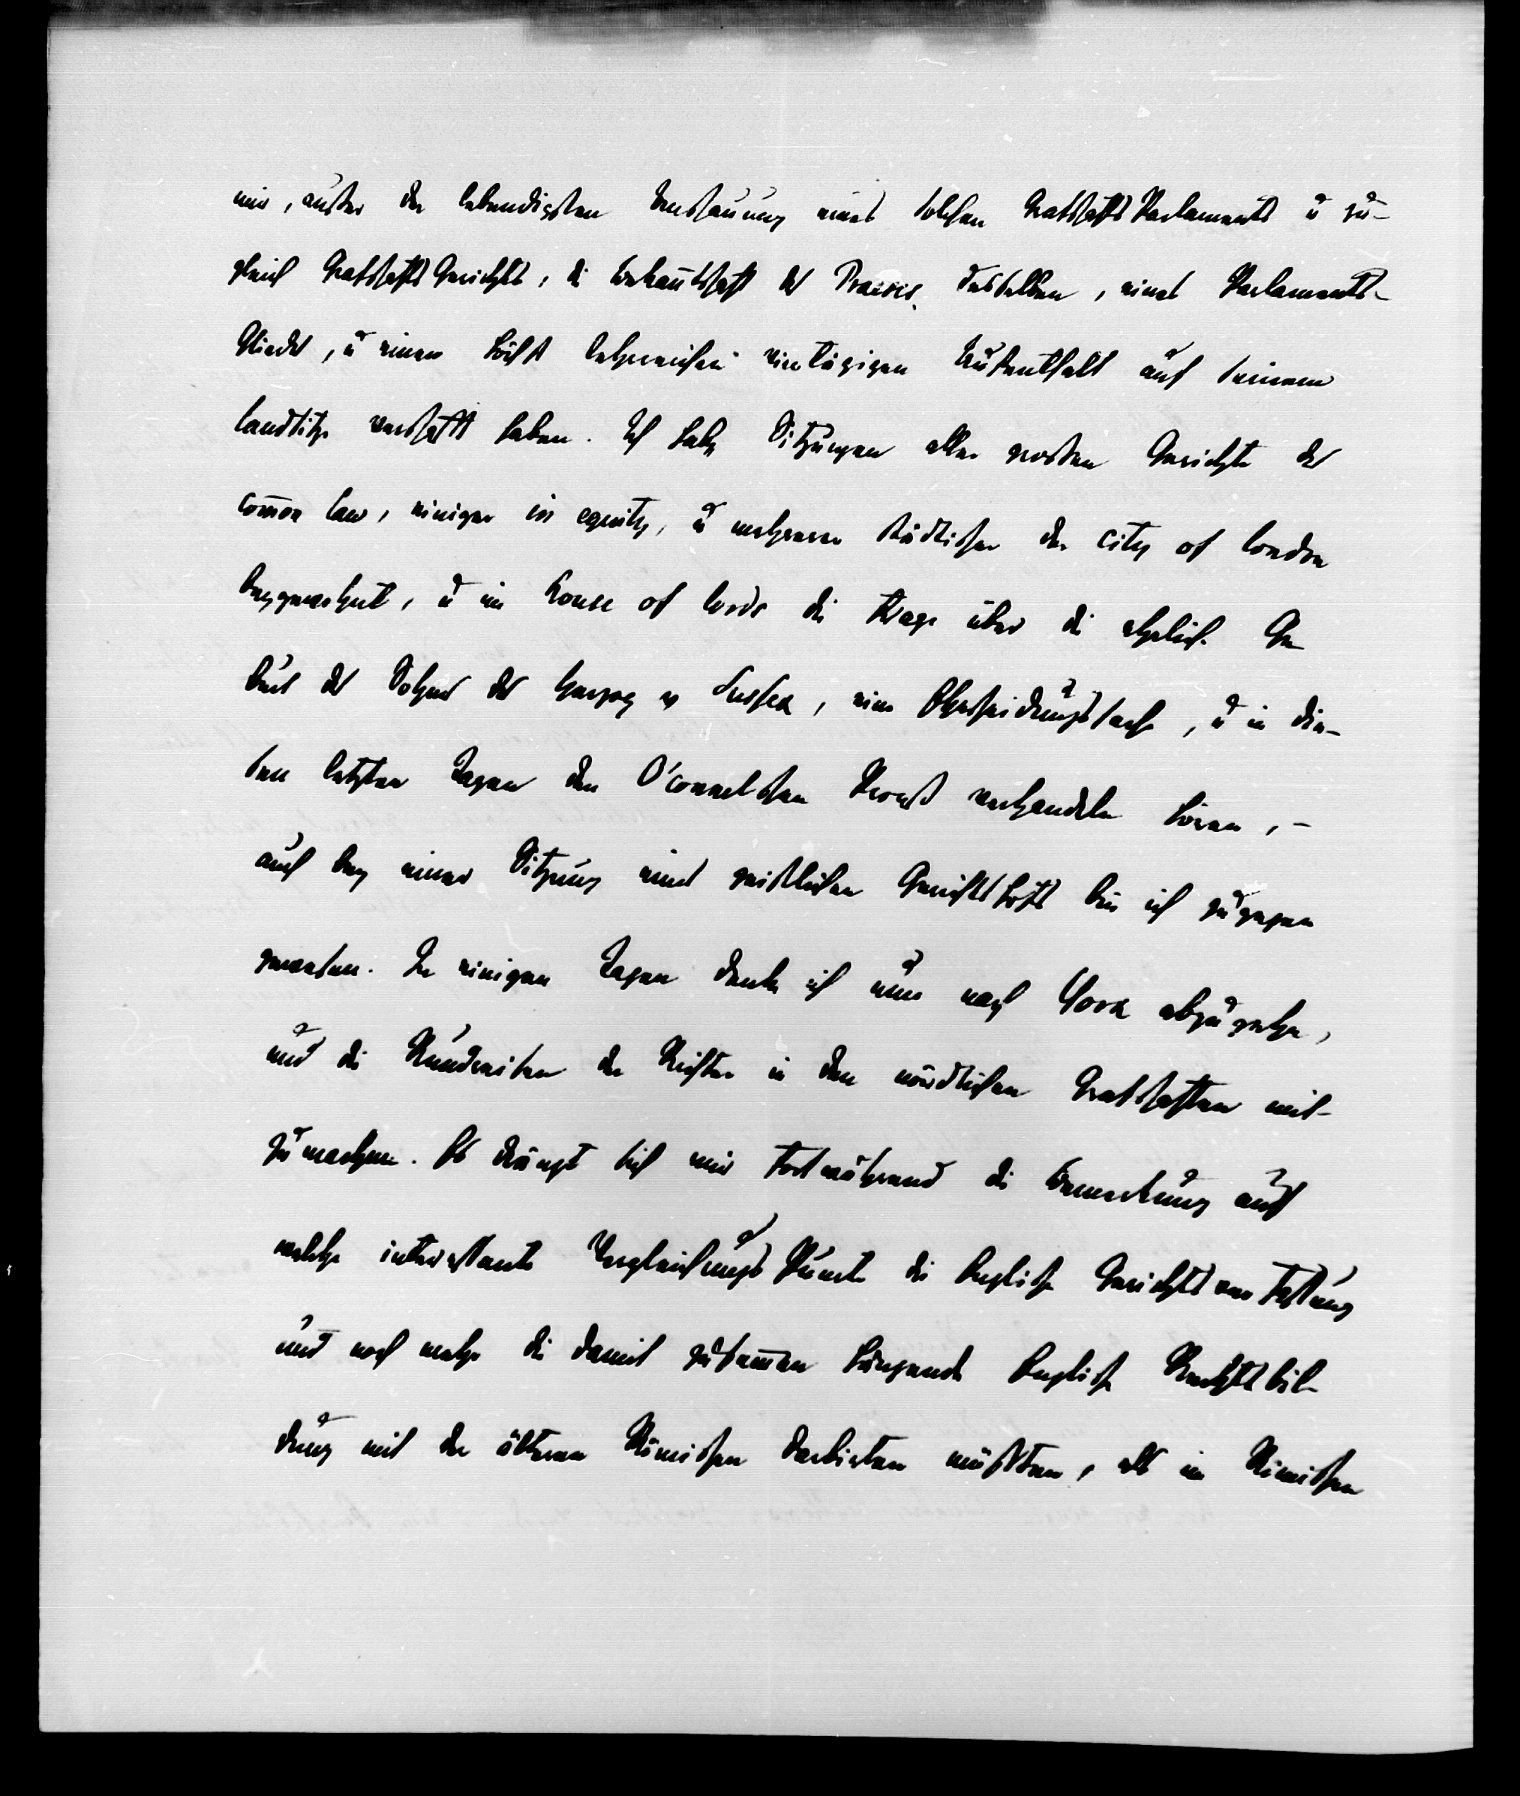 mir, außer der lebendigsten Anschauung eines solchen Grafschafts Parlaments u zu-
gleich Grafschafts Gerichts, die Bekantschaft des Praeses desselben, eines Parlaments-
Glieds, u einen höchst lehrreichen viertägigen Aufenthalt auf seinem
Landsitze verschafft haben. Ich habe Sitzungen aller grosen Gerichte des
com̄on law, einiger in equity, u mehrerer städtischer der City of London
beygewohnt, u im house of lords die Frage über die eheliche Ge
burt des Sohnes des Herzog v Sussex, eine Ehescheidungssache, u in die-
sen letzten Tagen den O'connelschen Proceß verhandeln hören, -
auch bey einer Sitzung eines geistlichen Gerichtshofs bin ich zugegen
gewesen. In einigen Tagen denke ich nun nach York abzugehen,
und die Rundreisen der Richter in den nördlichen Grafschaften mit-
zumachen. Es drängt sich mir fortwährend die Bemerkung auf
welche interessante Vergleichungs Puncte die Englische Gerichtsverfassung
und noch mehr die damit zusam̄en hängende Englische Rechtsbil-
dung mit der älteren Römischen darbieten müßten, als im Römischen